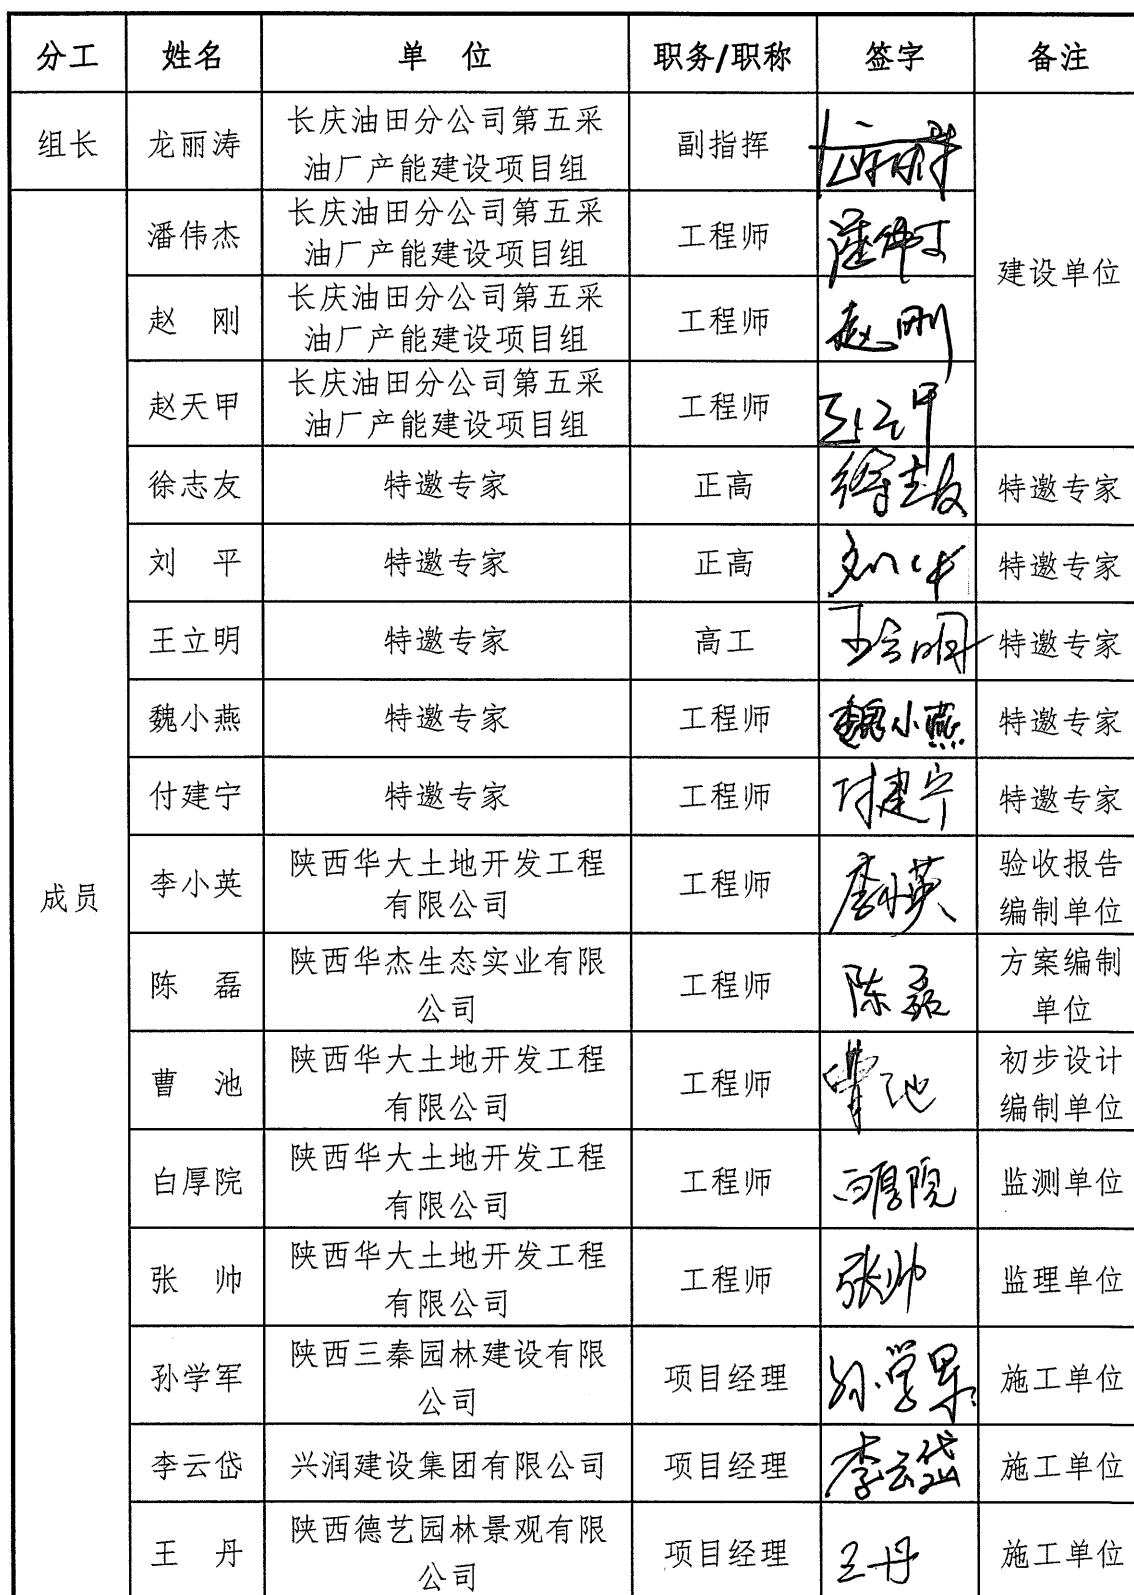 分工 姓名 单 位 职务/职称 签字 备注
组长 龙丽涛 长庆油田分公司第五采
油厂产能建设项目组 副指挥
潘伟杰 长庆油田分公司第五采
油厂产能建设项目组 工程师 建设单位
赵 刚 长庆油田分公司第五采
油厂产能建设项目组 工程师 赵刚
赵天甲 长庆油田分公司第五采
油厂产能建设项目组 工程师
徐志友 特邀专家 正高 徐志友 特邀专家
刘 平 特邀专家 正高 特邀专家
王立明 特邀专家 高工 王立明 特邀专家
魏小燕 特邀专家 工程师 魏小燕 特邀专家
付建宁 特邀专家 工程师 付建宁 特邀专家
成员 李小英 陕西华大土地开发工程
有限公司 工程师 李小英 验收报告
编制单位
陈 磊 陕西华杰生态实业有限
公司 工程师 陈磊 方案编制
单位
曹 池 陕西华大土地开发工程
有限公司 工程师 曹池 初步设计
编制单位
白厚院 陕西华大土地开发工程
有限公司 工程师 白厚院 监测单位
张 帅 陕西华大土地开发工程
有限公司 工程师 张帅 监理单位
孙学军 陕西三秦园林建设有限
公司 项目经理 孙学军 施工单位
李云岱 兴润建设集团有限公司 项目经理 李云岱 施工单位
王 丹 陕西德艺园林景观有限
公司 项目经理 王丹 施工单位